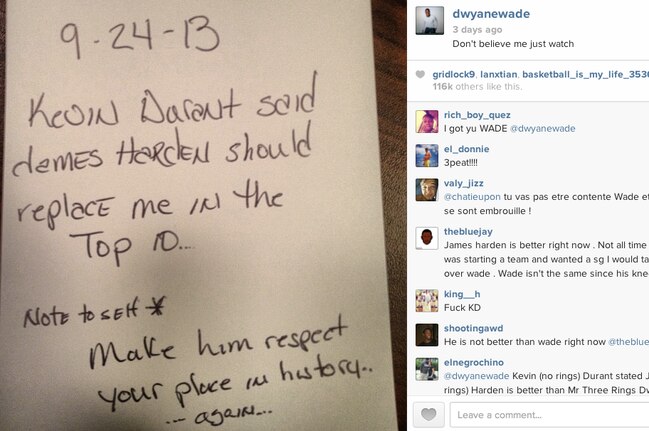 9-24-13
Kevin Durant said
James Harden should
replace me in the
Top 10...
Note to self *
Make him respect
your place in history..
... again...
dwyanewade
3 days ago
Don't believe me just watch
gridlock9, lanxtian, basketball_is_my_life_353
116k others like this.
rich_boy_quez
I got yu WADE @dwyanewade
el_donnie
3peat!!!!
valy_jizz
@chatieupon tu vas pas etre contente Wade et
se sont embrouille !
thebluejay
James harden is better right now . Not all time
was starting a team and wanted a sg I would ta
over wade . Wade isn't the same since his kne
king__h
Fuck KD
shootingawd
He is not better than wade right now @theblue
elnegrochino
@dwyanewade Kevin (no rings) Durant stated J
rings) Harden is better than Mr Three Rings Dw
Leave a comment...